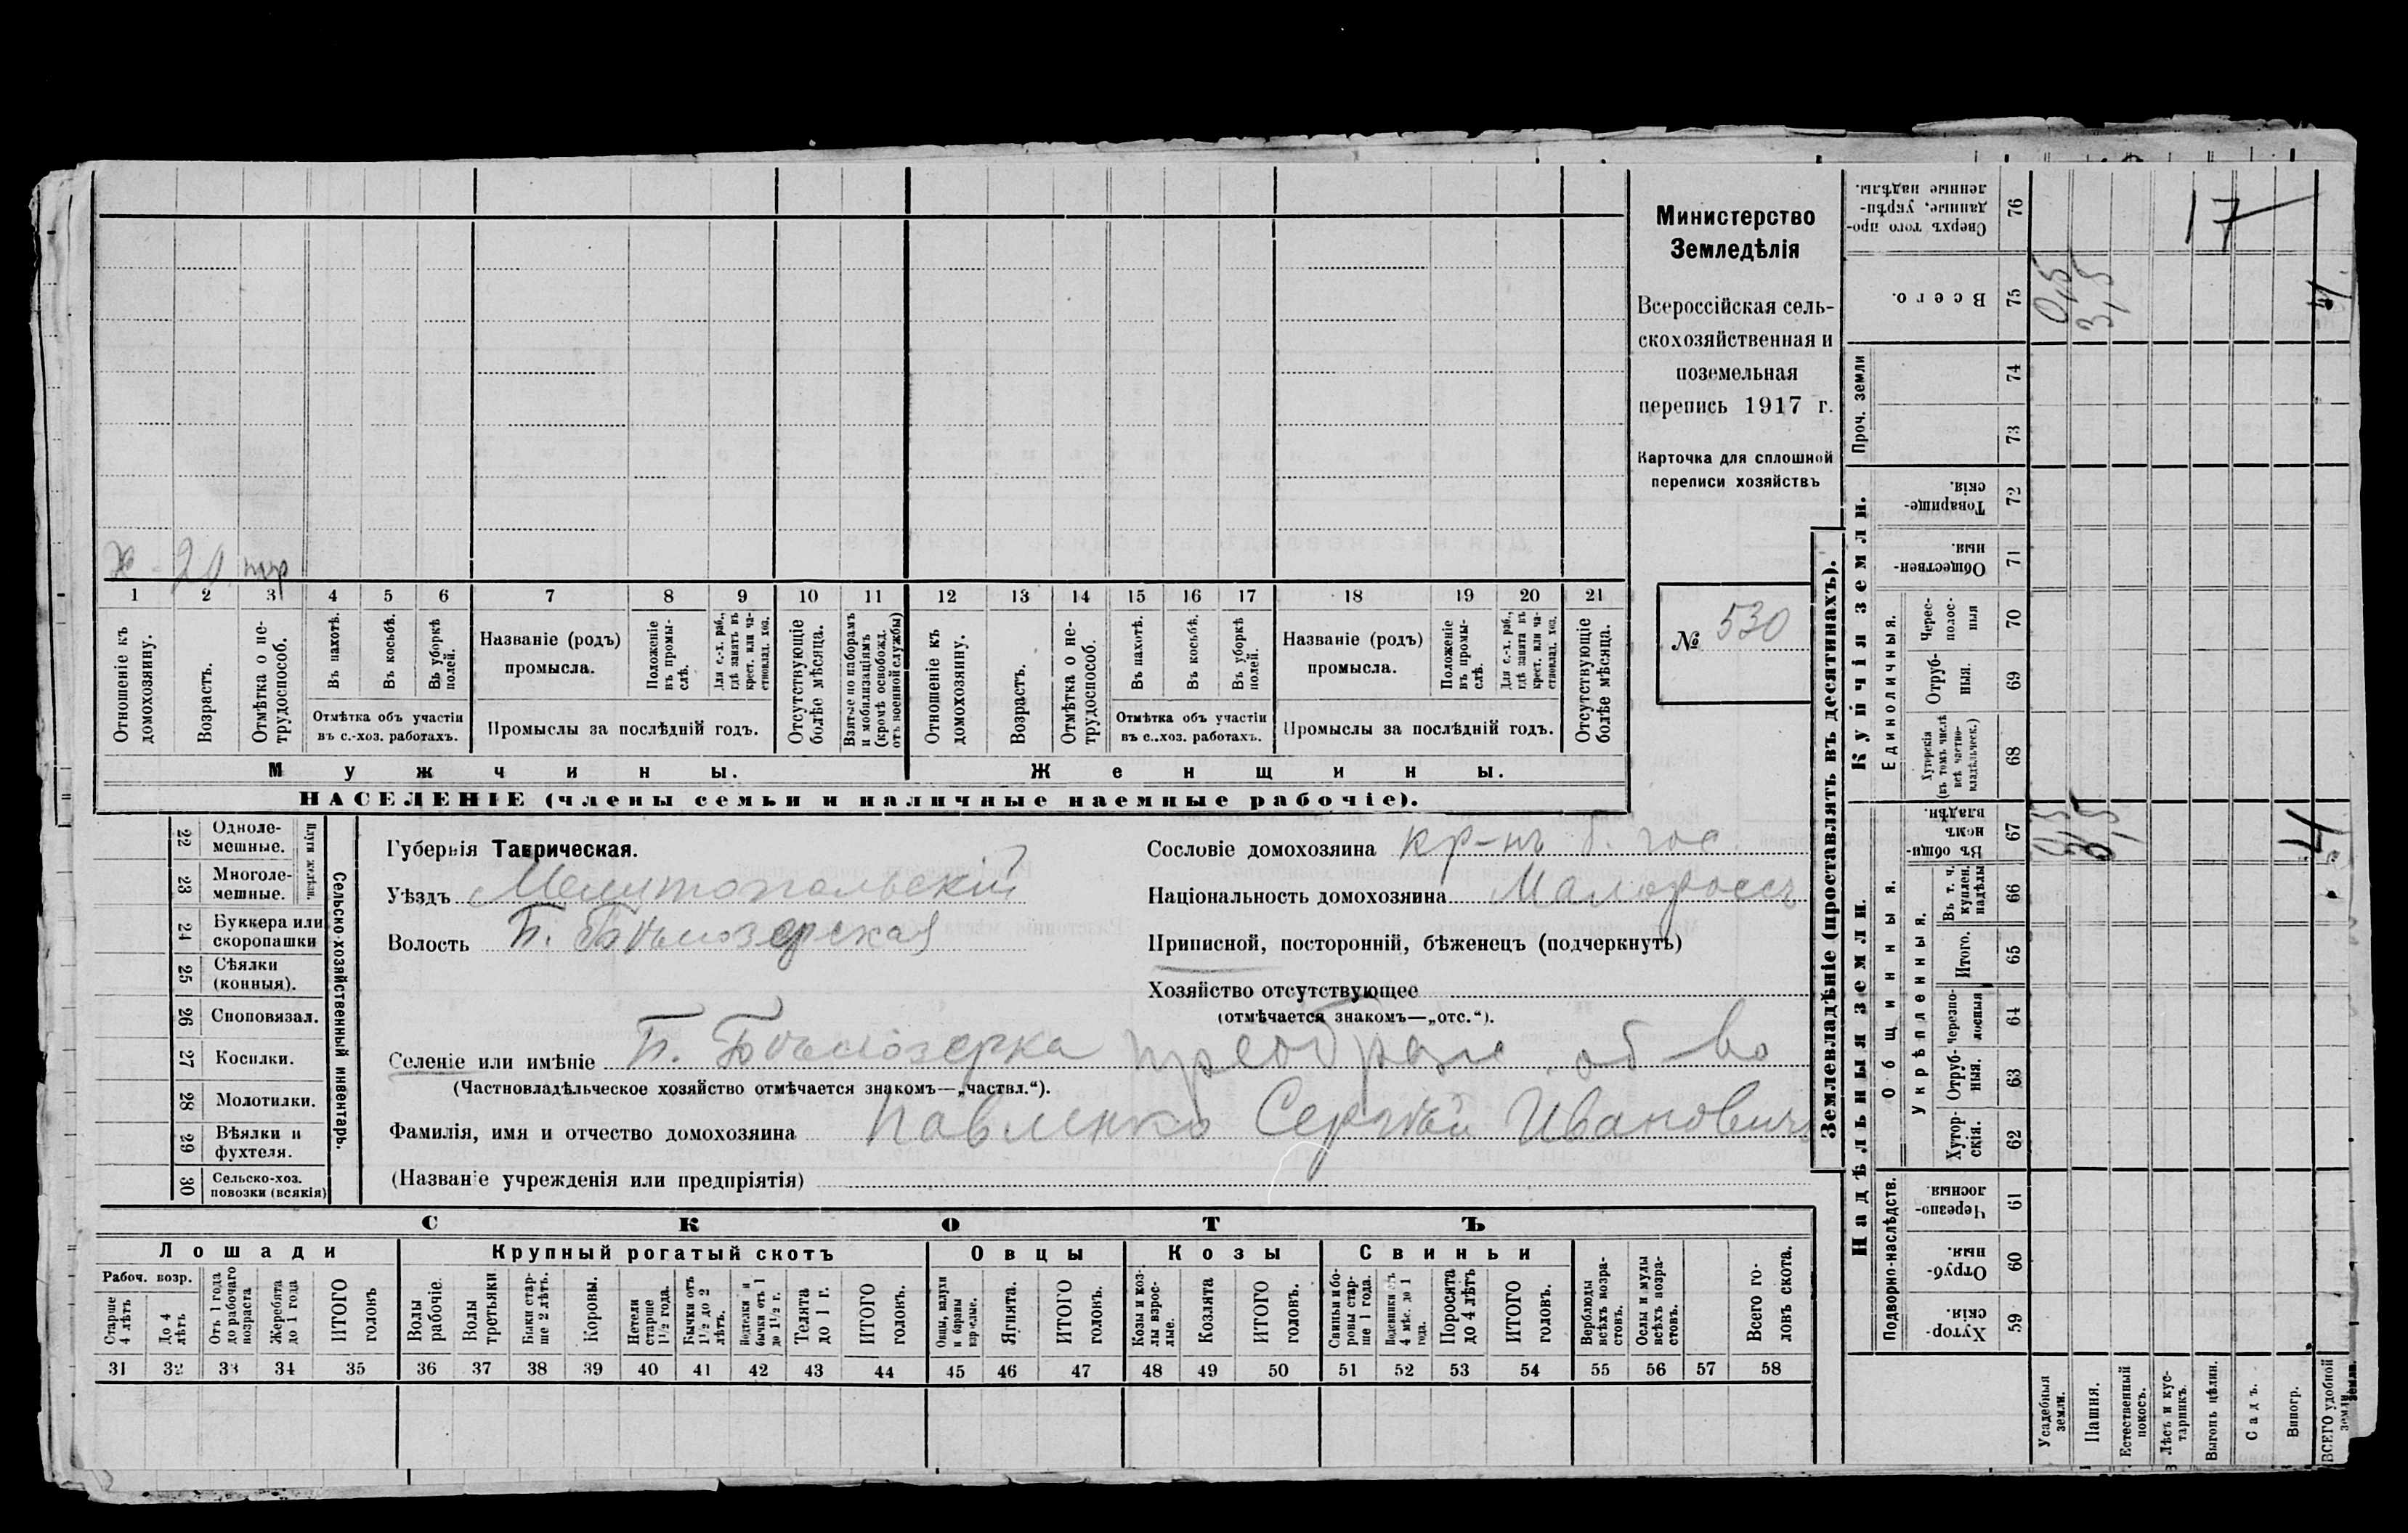 Министерство
Земледѣлія
Всероссійская сель-
скохозяйственная и
поземельная
перепись 1917 г.
Карточка для сплошной
переписи хозяйствъ
№ 530
1 2 3 4 5 6 7 8 9 10 11 12 13 14 15 16 17 18 19 20 21
Отношеніе къ домохозяину.
Возрастъ.
Отмѣтка о не-трудоспособ.
Въ пахотѣ.
Въ косьбѣ.
Въ уборкѣ полей.
Отмѣтка объ участіи
въ с.-хоз. работахъ.
Названіе (родъ)
промысла.
Положеніе въ промы-слѣ.
Для с.-х. раб., гдѣ занятъ въ крест. или ча-стновлад. хоз.
Промыслы за послѣдній годъ.
Отсутствующіе болѣе мѣсяца.
Взятые по наборамъ и мобилизаціямъ (кромѣ освобожд. отъ военной службы)
Отношеніе къ домохозяину.
Возрастъ.
Отмѣтка о не-трудоспособ.
Въ пахотѣ.
Въ косьбѣ.
Въ уборкѣ полей.
Отмѣтка объ участіи
въ с.-хоз. работахъ.
Названіе (родъ)
промысла.
Положеніе въ промы-слѣ.
Для с.-х. раб., гдѣ занята въ крест. или ча-стновлад. хоз.
Промыслы за послѣдній годъ.
Отсутствующіе болѣе мѣсяца.
Мужчины.
Женщины.
НАСЕЛЕНІЕ (члены семьи и наличные наемные рабочіе).
22 Одноле-мешные.
23 Многоле-мешные.
24 Буккера или скоропашки
25 Сѣялки (конныя).
26 Сноповязал.
27 Косилки.
28 Молотилки.
29 Вѣялки и фухтеля.
30 Сельско-хоз. повозки (всякія)
Сельско-хозяйственный инвентарь.
Губернія Таврическая.
Уѣздъ Мелитопольскій
Волость Б. Бѣлозерская
Сословіе домохозяина кр-нъ б. гос.
Національность домохозяина Малороссъ
Приписной, посторонній, бѣженецъ (подчеркнуть)
Хозяйство отсутствующее
(отмѣчается знакомъ—„отс.“).
Селеніе или имѣніе Б. Бѣлозерка преображ. об-во
(Частновладѣльческое хозяйство отмѣчается знакомъ—„частвл.“).
Фамилія, имя и отчество домохозяина Павленко Сергѣй Ивановичъ
(Названіе учрежденія или предпріятія)
СКОТЪ
Лошади
Крупный рогатый скотъ
Овцы
Козы
Свиньи
Рабоч. возр.
Старше 4 лѣтъ
До 4 лѣтъ
Отъ 1 года до рабочаго возраста
Жеребята до 1 года
ИТОГО головъ
Волы рабочіе.
Волы третьяки
Быки стар-ше 2 лѣтъ.
Коровы.
Нетели старше 1½ года.
Бычки отъ 1½ до 2 лѣтъ.
Телята до 1 г.
ИТОГО головъ.
Ягнята.
ИТОГО головъ.
Козы и коз-лы взрос-лые.
Козлята
ИТОГО головъ.
Свиньи и бо-ровы стар-ше 1 года.
Поросята до 4 лѣтъ
ИТОГО головъ.
Верблюды всѣхъ возра-стовъ.
Ослы и мулы всѣхъ возра-стовъ.
Всего го-ловъ скота.
31 32 33 34 35 36 37 38 39 40 41 42 43 44 45 46 47 48 49 50 51 52 53 54 55 56 57 58
Землевладѣніе (проставлять въ десятинахъ).
Надѣльныя земли.
Купчія земли.
Проч. земли
Подворно-наслѣдств.
Общинныя.
Укрѣпленныя.
Единоличныя.
Сверхъ того про-данные, укрѣп-ленные надѣлы. 76
Всего. 75 3,5
74
73
Товарище-скія. 72
Обществен-ныя. 71
Черес-полос-ныя 70
Отруб-ныя. 69
Хуторскія (въ томъ числѣ всѣ частно-владѣльческ.) 68
Въ общин-номъ владѣн. 67 3,5
Въ т. ч. куплен. надѣлы 66
Итого. 65
черезпо-лосныя 64
Отруб-ныя. 63
Хутор-скія. 62
Черезпо-лосныя. 61
Отруб-ныя. 60
Хутор-скія. 59
Усадебныя земли.
Пашня.
Естественный покосъ.
Лѣсъ и кус-тарникъ.
Выгонъ цѣлин.
Садъ.
Виногр.
ВСЕГО удобной земли
17